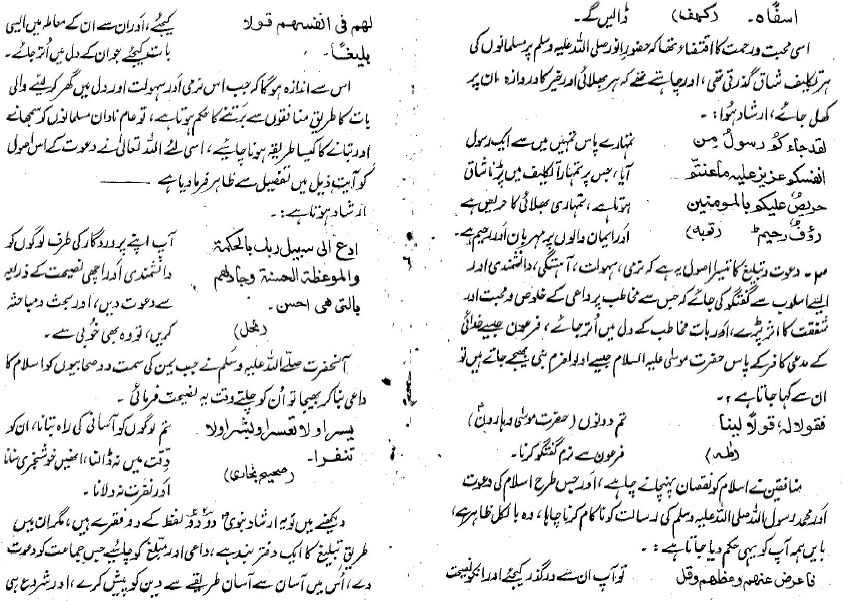 اسفًاہ۔ (کہف) ڈالیں گے۔
اسی محبت ورحمت کا اقتضاء تھا کہ حضور انور صلی اللہ علیہ وسلم پر مسلمانوں کی
ہر تکلیف شاق گذرتی تھی، اور چاہتے تھے کہ ہر بھلائی اور خیر کا دروازہ ان پر
کھل جائے، ارشاد ہوا:۔
لقد جاء کو رسول من تمہارے پاس تمہیں میں سے ایک رسول
انفسکو عزیز علیہ ماعنتم آیا، جس پر تمہارا تکلیف میں پڑنا شاق
حریص علیکو بالمومنین ہوتا ہے، تمہاری بھلائی کا حریص ہے
رؤف رحیم (توبہ) اور ایمان والوں پر مہربان اور رحیم ہے۔
۳۔ دعوت و تبلیغ کا تیسرا اصول یہ ہے کہ نرمی، سہولت، آہستگی، دانشمندی اور
ایسے اسلوب سے گفتگو کی جائے کہ جس سے مخاطب پر داعی کے خلوص و محبت اور
شفقت کا اثر پڑے، اور بات مخاطب کے دل میں اُتر جائے، فرعون جیسے خدائی
کے مدعی کافر کے پاس حضرت موسٰی علیہ السلام جیسے اولوالعزم نبی بھیجے جاتے ہیں تو
ان سے کہا جاتا ہے:۔
فقولا لہ قولًا لینا تم دونوں (حضرت موسٰی و ہارون)
(طٰہ) فرعون سے نرم گفتگو کرنا۔
منافقین نے اسلام کو نقصان پہنچانے چاہے، اور جس طرح اسلام کی دعوت
اور محمد رسول اللہ صلی اللہ علیہ وسلم کی رسالت کو ناکام کرنا چاہا، وہ بالکل ظاہر ہے،
بایں ہمہ آپ کو یہی حکم دیا جاتا ہے:۔
فاعرض عنہم وعظہم وقل تو آپ ان سے درگذر کیجئے اور انکو نصیحت
لہم فی انفسہم قولا کیجئے، اور ان سے ان کے معاملہ میں ایسی
بلیغًا۔ بات کیجئے جو ان کے دل میں اُتر جائے۔
اس سے اندازہ ہوگا کہ جب اس نرمی اور سہولت اور دل میں گھر کر لینے والی
بات کا طریق منافقوں سے برتنے کا حکم ہوتا ہے، تو عام نادان مسلمانوں کو سمجھانے
اور بتانے کا کیسا طریقہ ہونا چاہیے، اسی لئے اللہ تعالیٰ نے دعوت کے اس اصول
کو آیتِ ذیل میں تفصیل سے ظاہر فرمادیا ہے
ارشاد ہوتا ہے:۔
ادع الی سبیل ربک بالحکمۃ آپ اپنے پروردگار کی طرف لوگوں کو
والموعظۃ الحسنۃ وجادلہم دانشمندی اور اچھی نصیحت کے ذریعہ
بالتی ھی احسن۔ سے دعوت دیں، اور بحث و مباحثہ
(نحل) کریں، تو وہ بھی خوبی سے۔
آنحضرت صلے اللہ علیہ وسلم نے جب یمن کی سمت دو صحابیوں کو اسلام کا
داعی بنا کر بھیجا تو اُن کو چلتے وقت یہ نصیحت فرمائی۔
یسرا ولا تعسرا وبشرا ولا تم لوگوں کو آسانی کی راہ بتانا، ان کو
تنفرا۔ دقت میں نہ ڈالنا، انھیں خوشخبری سنانا
(صحیح بخاری) اور نفرت نہ دلانا۔
دیکھنے میں تو یہ ارشاد نبوی دو دو لفظ کے دو فقرے ہیں، مگر ان میں
طریقِ تبلیغ کا ایک دفتر بند ہے، داعی اور مبلغ کو چاہئے جس جماعت کو دعوت
دے، اُس میں آسان سے آسان طریقے سے دین کو پیش کرے، اور شروع ہی